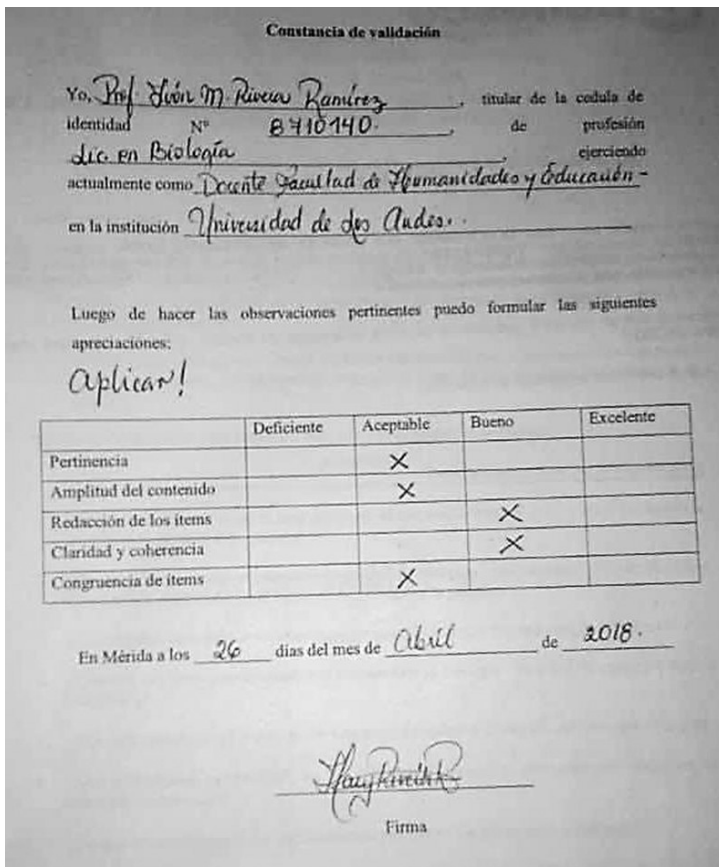 Constancia de validación
Yo, Prof. Ivón M. Rivera Ramírez, titular de la cedula de
identidad Nº 8710140. , de profesión
Lic. en Biología , ejerciendo
actualmente como Docente Facultad de Humanidades y Educación -
en la institución Universidad de Los Andes..
Luego de hacer las observaciones pertinentes puedo formular las siguientes
apreciaciones:
Aplicar!
Deficiente Aceptable Bueno Excelente
Pertinencia X
Amplitud del contenido X
Redacción de los ítems X
Claridad y coherencia X
Congruencia de ítems X
En Mérida a los 26 días del mes de Abril de 2018.
Firma